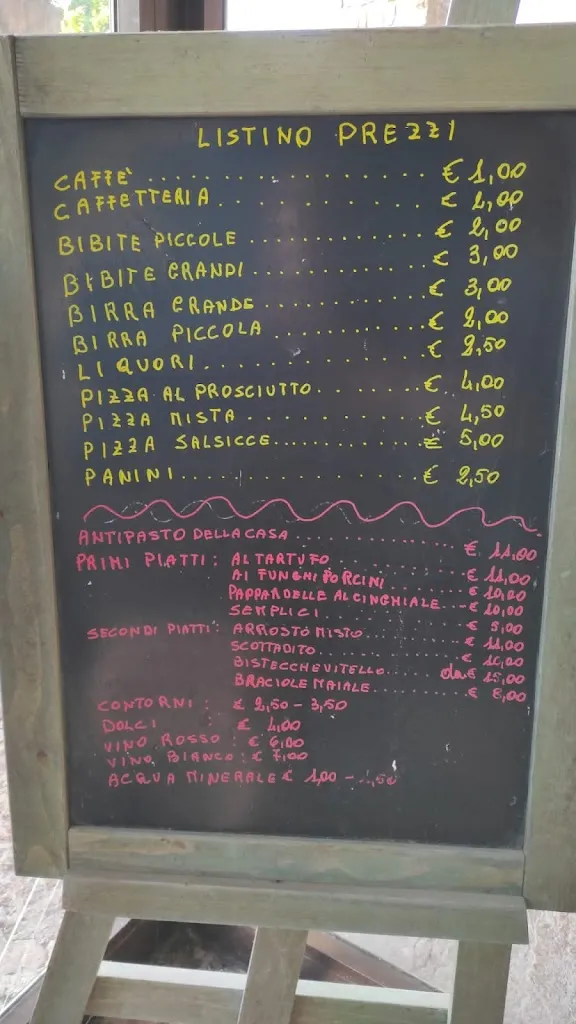 LISTINO PREZZI
CAFFE' .................... € 1,00
CAFFETTERIA .................... €
BIBITE PICCOLE .................... € 2,00
BIBITE GRANDI .................... € 3,00
BIRRA GRANDE .................... € 3,00
BIRRA PICCOLA .................... € 2,00
LIQUORI .................... € 2,50
PIZZA AL PROSCIUTTO ........ € 4,00
PIZZA MISTA .................... € 4,50
PIZZA SALSICCE .................... € 5,00
PANINI .................... € 2,50
ANTIPASTO DELLA CASA .................... € 11,00
PRIMI PIATTI : AL TARTUFO .................... € 11,00
AI FUNGHI PORCINI .......... € 10,00
PAPPARDELLE AL CINGHIALE --- € 10,00
SEMPLICI .................... € 5,00
SECONDI PIATTI : ARROSTO MISTO .................... € 11,00
SCOTTADITO .................... € 10,00
BISTECCHE VITELLO ........ da € 15,00
BRACIOLE MAIALE .......... € 8,00
CONTORNI : € 2,50 - 3,50
DOLCI € 4,00
VINO ROSSO : € 6,00
VINO BIANCO : € 7,00
ACQUA MINERALE € 1,00 -